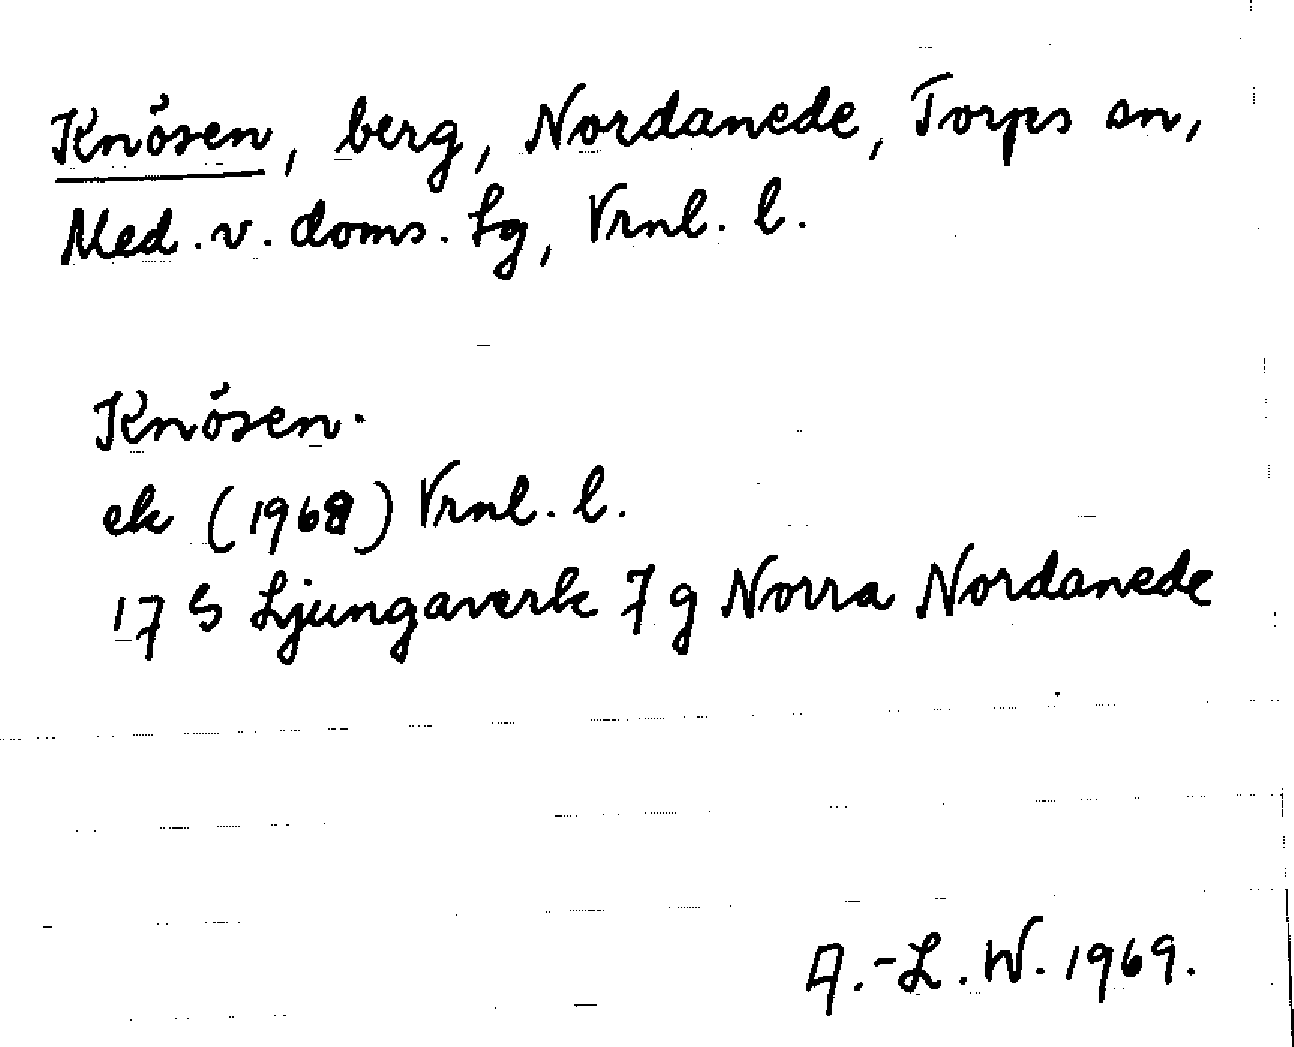 Knösen, berg, Nordanede, Torps sn,
Med. v. doms. Lg, Vrnl. l.
Knösen.
ek (1968) Vrnl. l.
17 S Ljungaverk 7 g Norra Nordanede
A.-L. W. 1969.